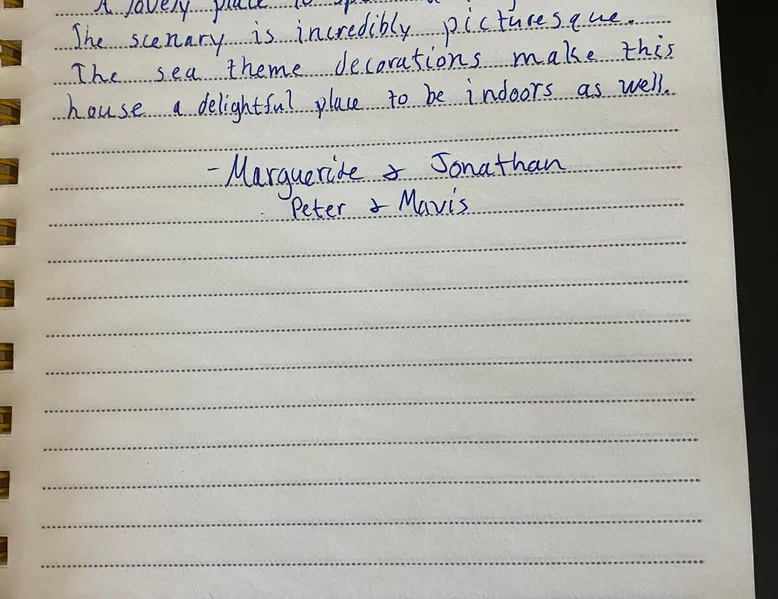 A lovely place to
The scenary is incredibly picturesque.
The sea theme decorations make this
house a delightful place to be indoors as well.
- Marguerite & Jonathan
Peter & Mavis